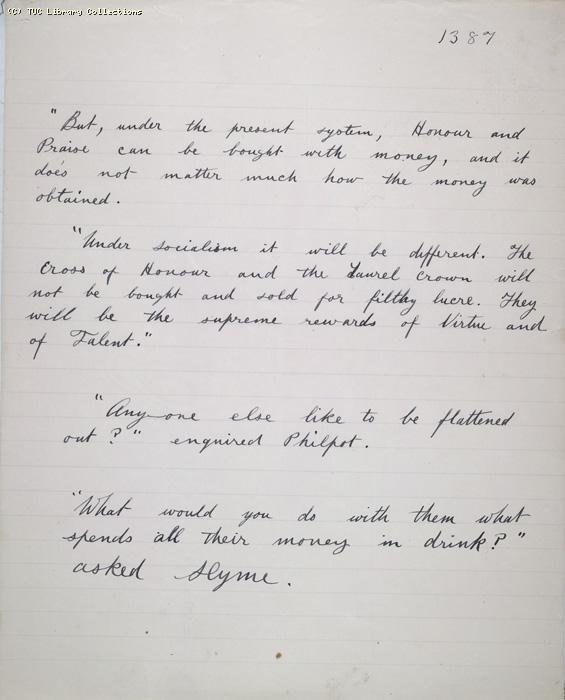 (C) TUC Library Collections
1387
"But, under the present system, Honour and
Praise can be bought with money, and it
does not matter much how the money was
obtained.
"Under socialism it will be different. The
Cross of Honour and the Laurel Crown will
not be bought and sold for filthy lucre. They
will be the supreme rewards of Virtue and
of Talent."
"Any-one else like to be flattened
out?" enquired Philpot.
"What would you do with them what
spends all their money in drink?"
asked Slyme.